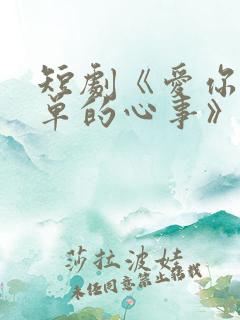 短劇《愛你
單的心事》
莎拉波娃
未经同意禁止转载